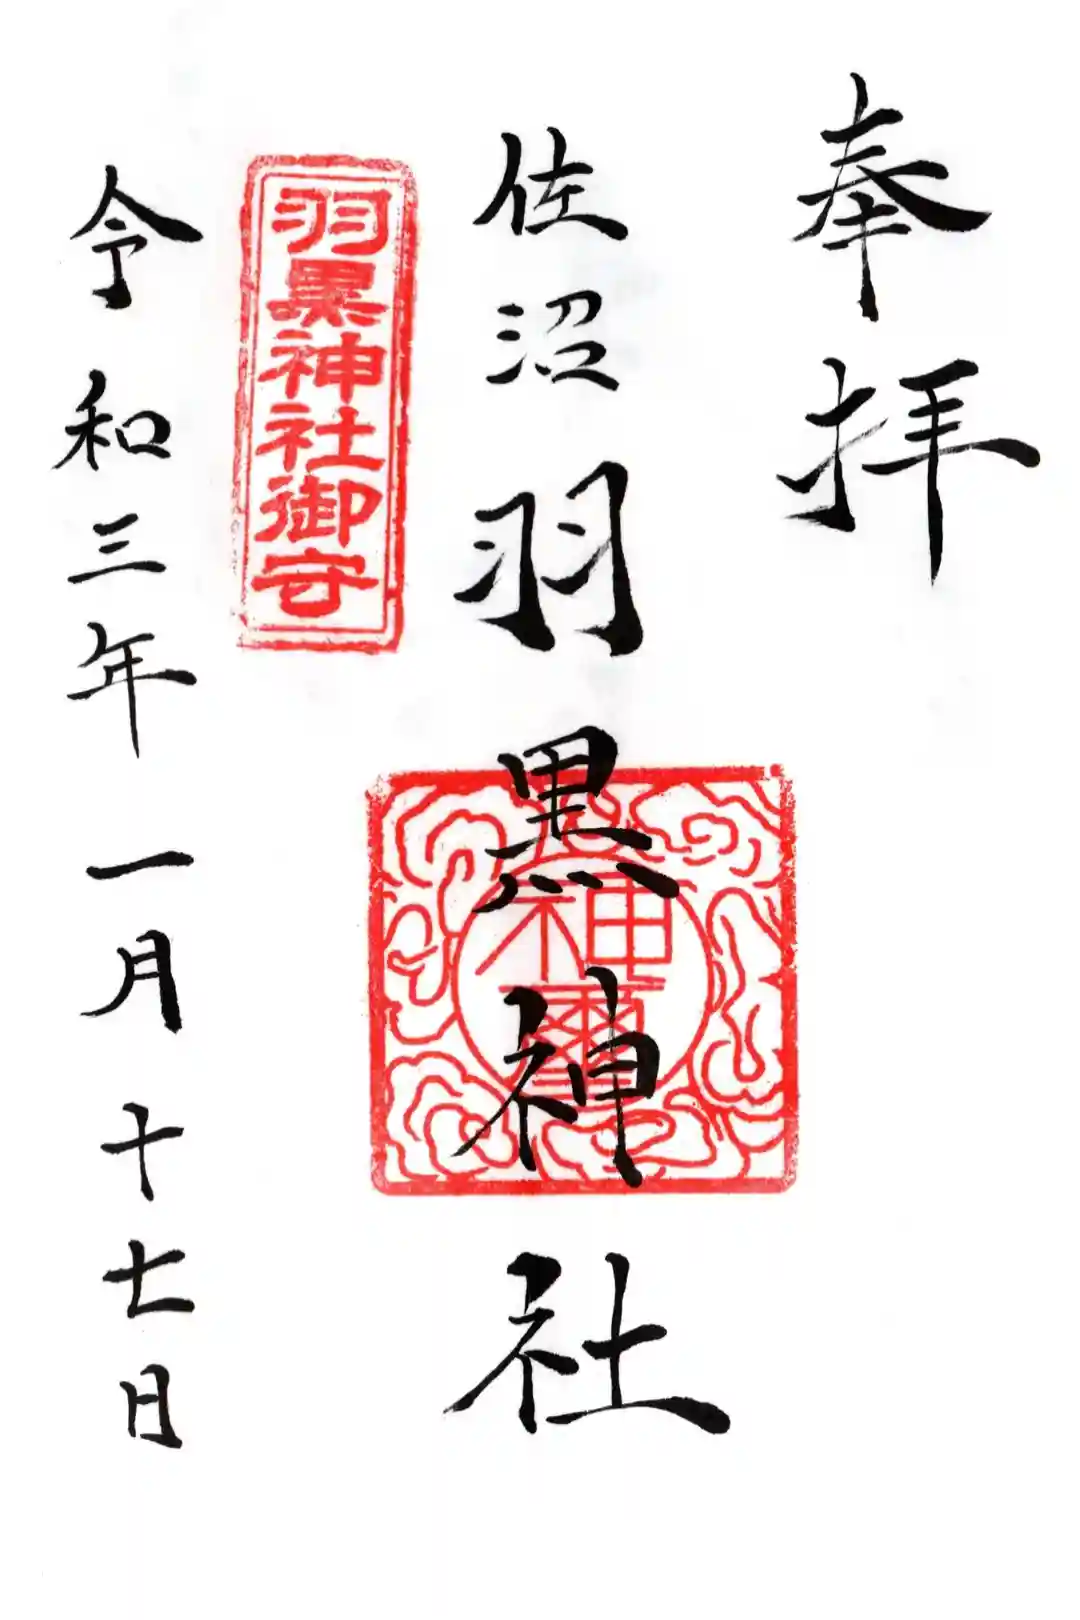 奉拝
佐沼羽黒神社
神璽
羽黒神社御守
令和三年一月十七日